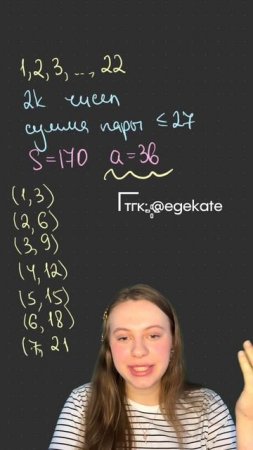 1,2,3, ..., 22
2k чисел
сумма пары ≤ 27
S=170 a=3b
ТГК: @egekate
(1,3)
(2,6)
(3,9)
(4,12)
(5,15)
(6,18)
(7, 21